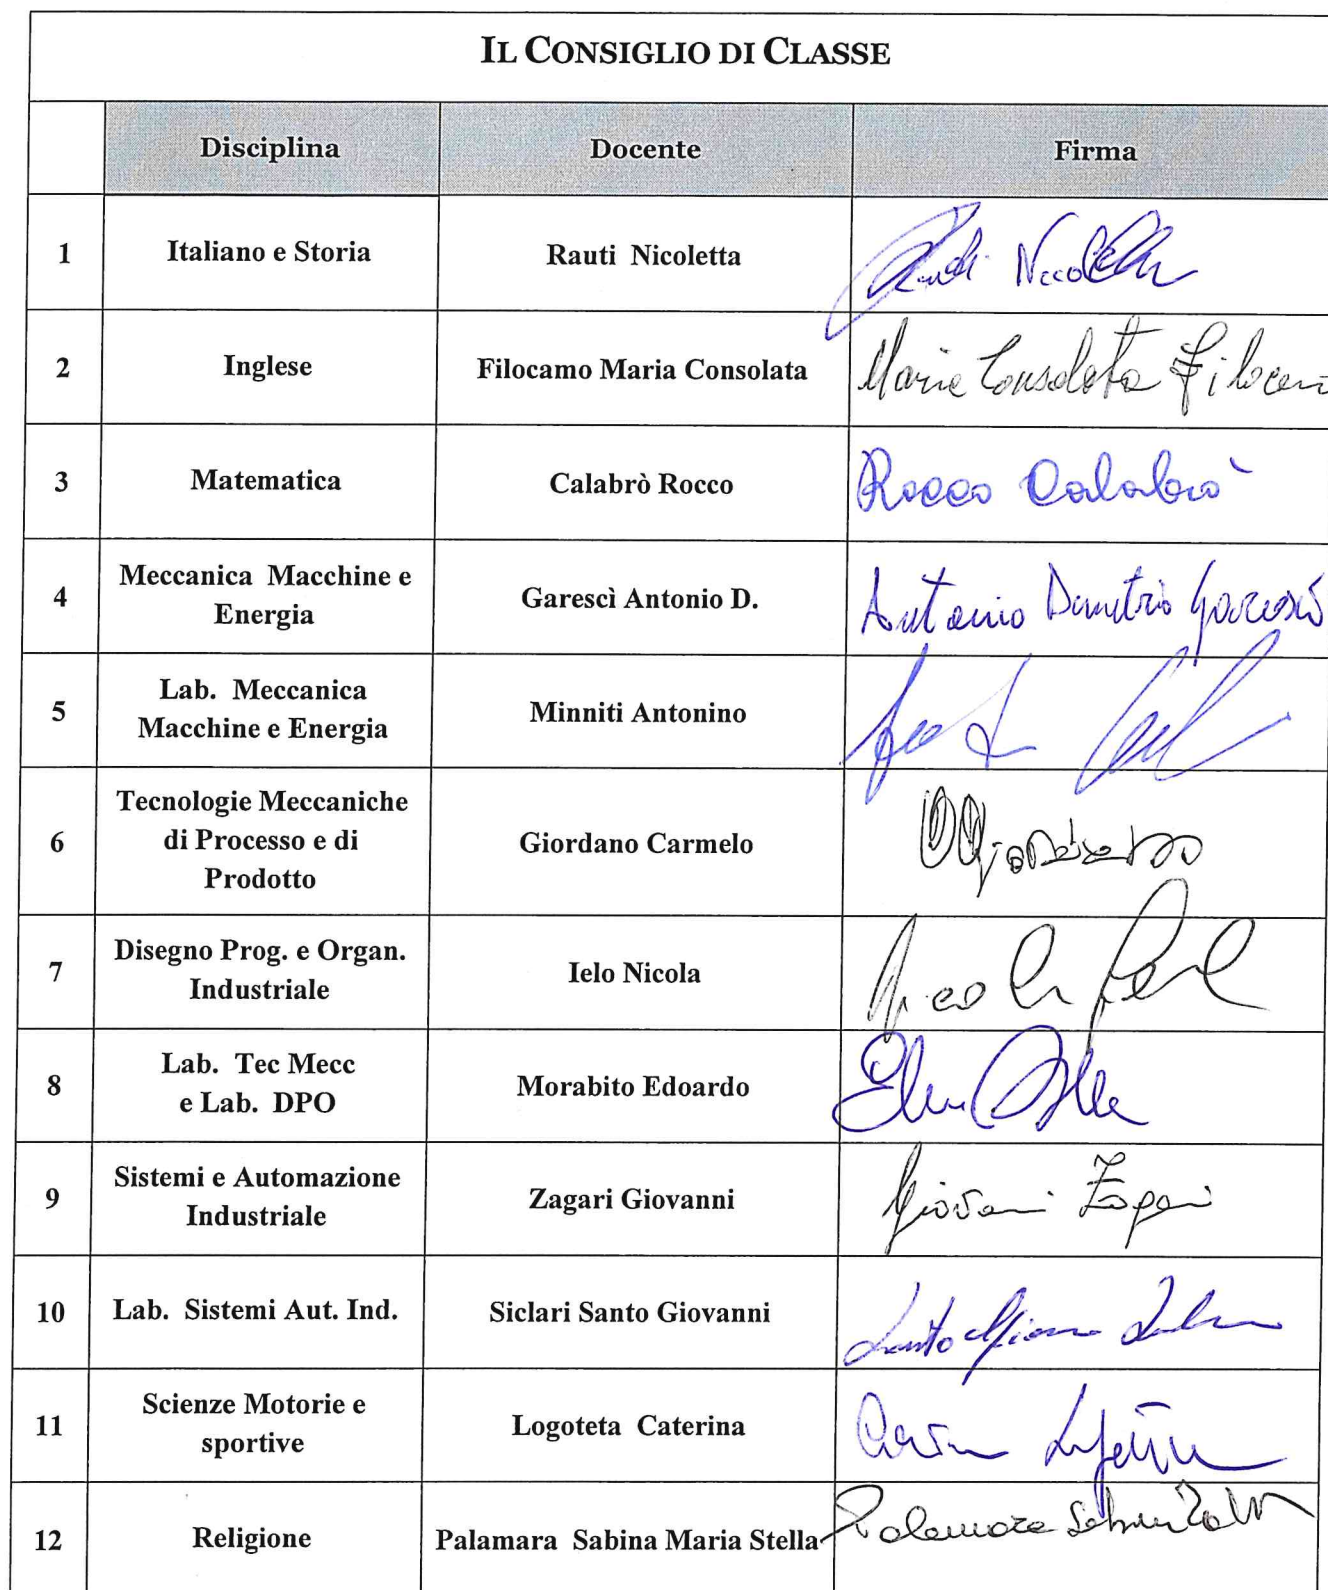 IL CONSIGLIO DI CLASSE
Disciplina Docente Firma
1 Italiano e Storia Rauti Nicoletta
2 Inglese Filocamo Maria Consolata Maria Consolata
3 Matematica Calabrò Rocco Rocco Calabrò
4 Meccanica Macchine e
Energia Garescì Antonio D. Antonio Demetrio Garescì
5 Lab. Meccanica
Macchine e Energia Minniti Antonino
6 Tecnologie Meccaniche
di Processo e di
Prodotto Giordano Carmelo
7 Disegno Prog. e Organ.
Industriale Ielo Nicola
8 Lab. Tec Mecc
e Lab. DPO Morabito Edoardo
9 Sistemi e Automazione
Industriale Zagari Giovanni Giovanni Zagari
10 Lab. Sistemi Aut. Ind. Siclari Santo Giovanni
11 Scienze Motorie e
sportive Logoteta Caterina
12 Religione Palamara Sabina Maria Stella Palamara